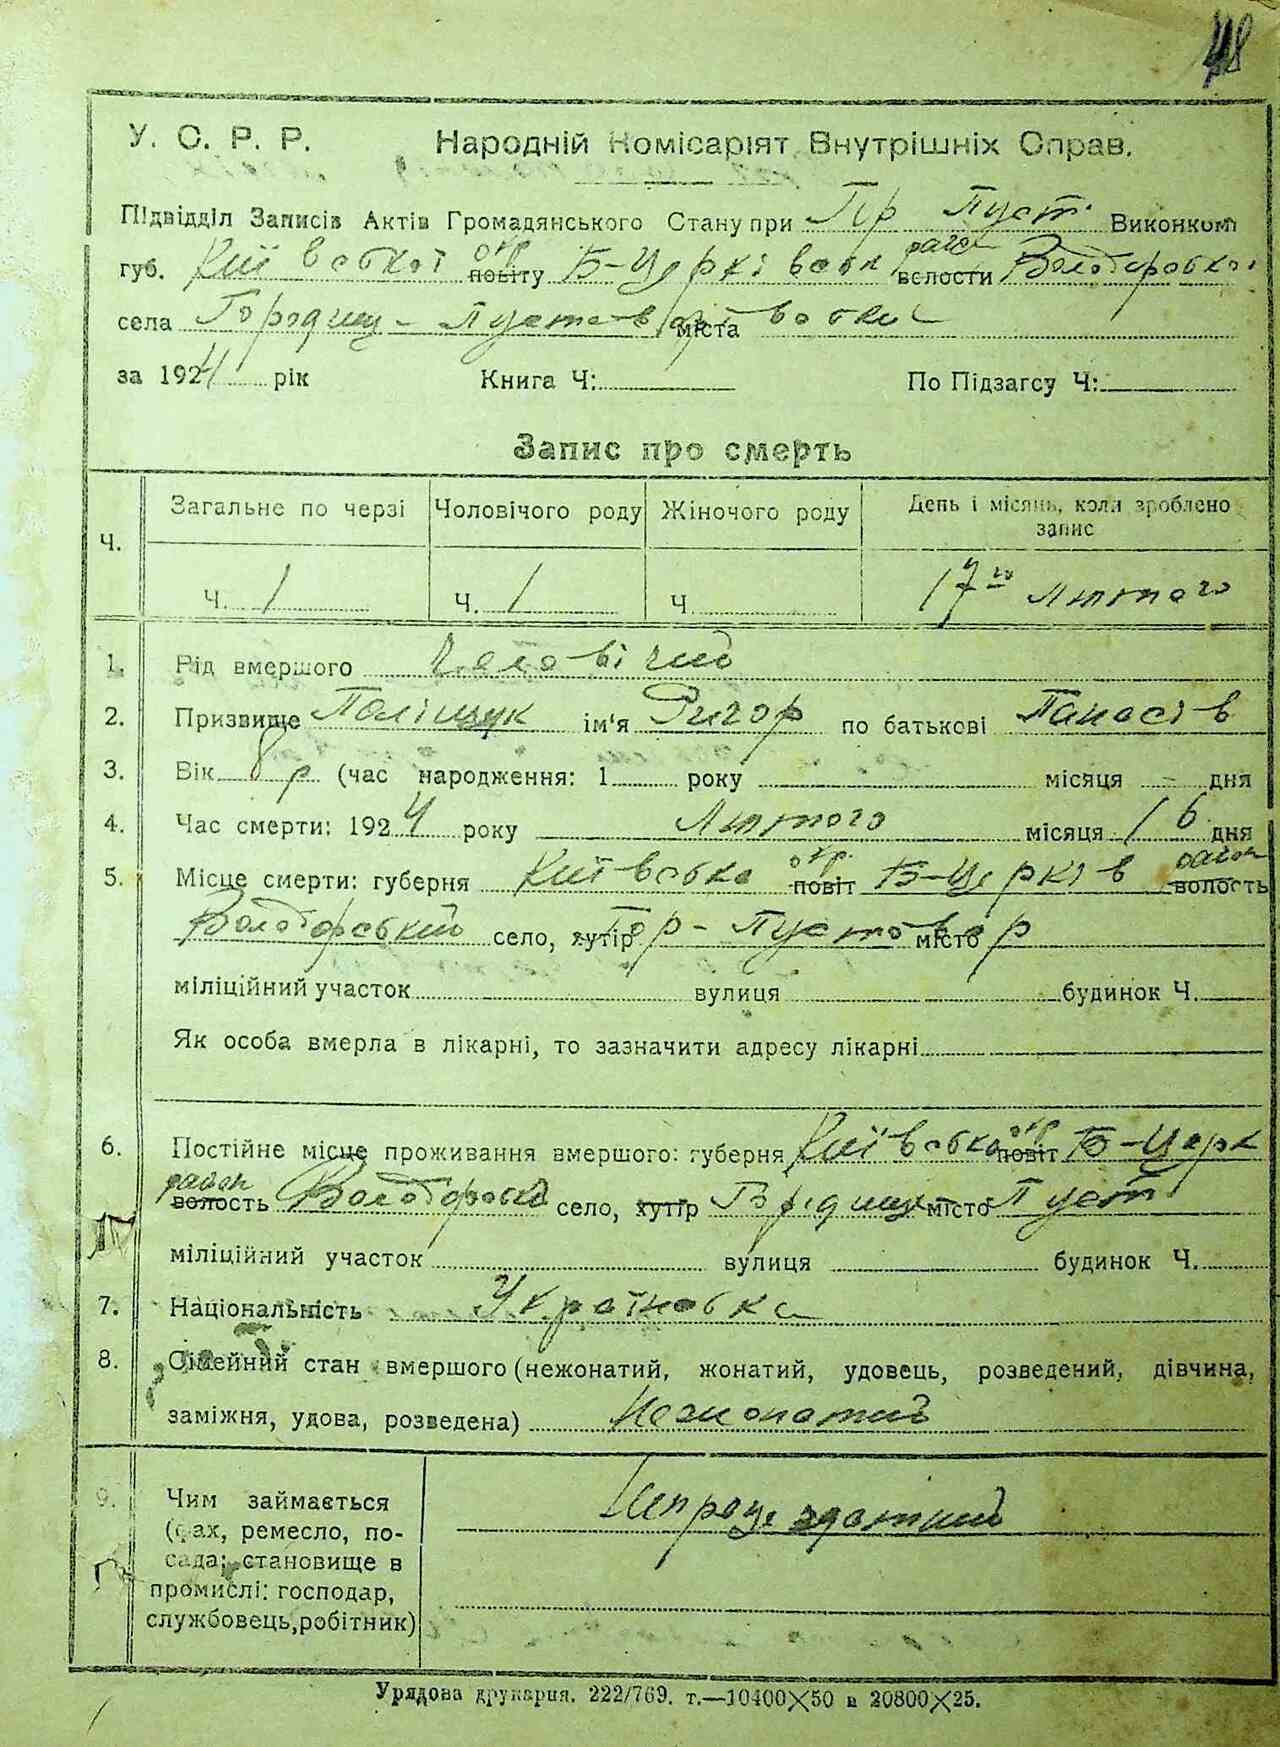 48
У. С. Р. Р. Народній Комісаріят Внутрішніх Справ.
Підвідділ Записів Актів Громадянського Стану при Гор Пуст. Виконкомі
окр район
губ. Київської повіту Б-Церківськ волости Володарської
села Городищ-Пустоварівської міста
за 1924 рік Книга Ч: По Підзагсу Ч:
Запис про смерть
Загальне по черзі Чоловічого роду Жіночого роду День і місяць, коли зроблено
запис
Ч.
Ч. 1 Ч. 1 Ч. 17го Лютого
1. Рід вмершого Чоловічий
2. Призвище Поліщук ім'я Ригор по батькові Панасів
3. Вік 8 р (час народження: 1 року місяця - дня
4. Час смерти: 1924 року Лютого місяця 16 дня
окр. район
5. Місце смерти: губерня Київська повіт Б-Церків волость
Володорський село, хутір Гор-Пустовар місто
міліційний участок вулиця будинок Ч.
Як особа вмерла в лікарні, то зазначити адресу лікарні
окр
6. Постійне місце проживання вмершого: губерня Київська повіт Б-Церк
район
волость Володорськ село, хутір Городищ місто Пуст
міліційний участок вулиця будинок Ч.
7. Національність Українська
8. Сімейний стан вмершого (нежонатий, жонатий, удовець, розведений, дівчина,
заміжня, удова, розведена) Нежонатий
9. Чим займається Непрацездатний
(фах, ремесло, по-
сада; становище в
промислі: господар,
службовець, робітник)
Урядова друкарня. 222/769. т.—10400×50 и 20800×25.